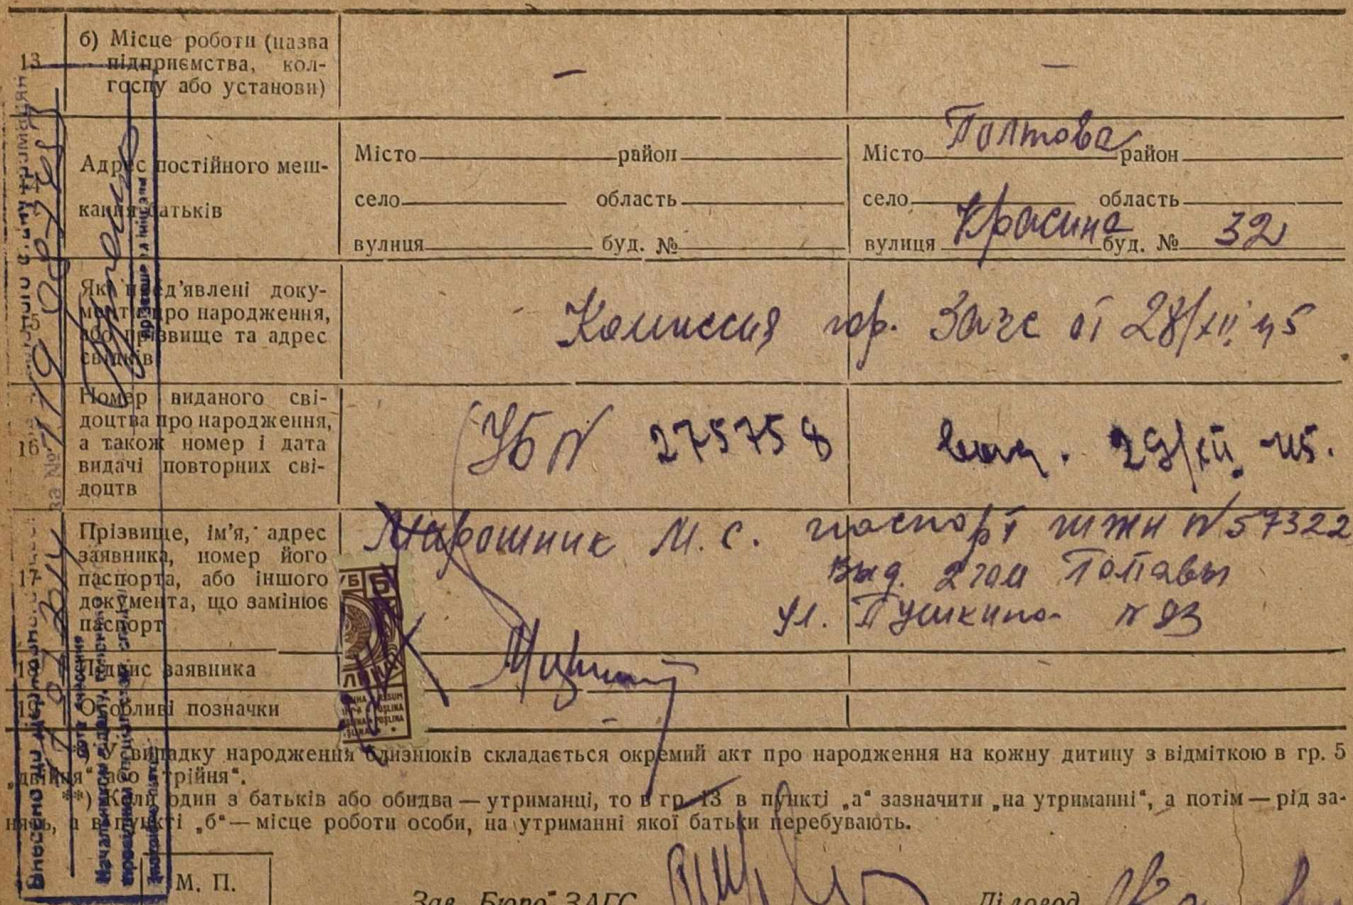 13
б) Місце роботи (назва
підприємства, кол-
госпу або установи)
—
—
Адрес постійного меш-
кання батьків
Місто район
село область
вулиця буд. №
Місто Полтова район
село область
вулиця Красина буд. № 32
Які пред’явлені доку-
менти про народження,
або прізвище та адрес
свідків
Комиссия гор. Загс от 28/XII 45
16
Номер виданого сві-
доцтва про народження,
а також номер і дата
видачі повторних сві-
доцтв
УБ N 275758 выд. 29/XII. 45.
17
Прізвище, ім’я, адрес
заявника, номер його
паспорта, або іншого
документа, що замінює
паспорт
Мирошник М. С. паспорт N 57322
Выд. 2 гом Полтавы
Ул. Пушкина N 93
18
Підпис заявника
19
Особливі позначки
*) У випадку народження близнюків складається окремий акт про народження на кожну дитину з відміткою в гр. 5
„двійня“ або „трійня“.
**) Коли один з батьків або обидва — утриманці, то в гр. 13 в пункті „а“ зазначити „на утриманні“, а потім — рід за-
нять, а в пункті „б“ — місце роботи особи, на утриманні якої батьки перебувають.
М. П.
Зав. Бюро ЗАГС
Діловод